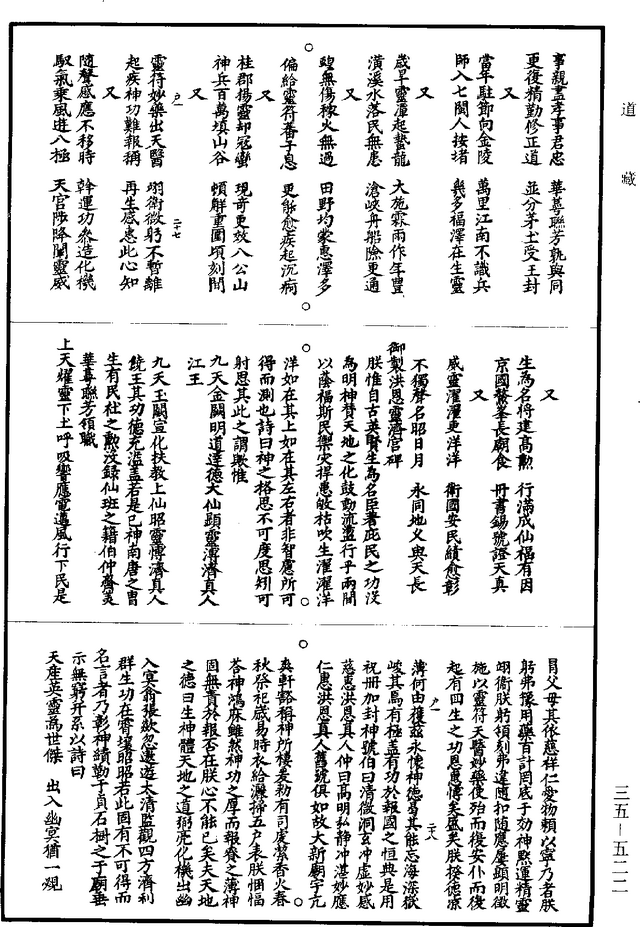 道藏
事親盡孝事君忠　華萼聯芳孰與同
更復精勤修正道　並分茅土受王封
又
當年駐節向金陵　萬里江南不識兵
師入七閩人按堵　幾多福澤在生靈
又
歲旱靈潭起蟄龍　大施霖雨作年豐
潢溪水落民無患　滄峽舟船險更通
又
蝗無傷稼火無過　田野均蒙惠澤多
偏給靈符蕃子息　更能愈疾起沉痾
又
桂郡揚靈却冦蠻　現奇更效八公山
神兵百萬填山谷　頓解重圍頃刻間
又
户一　二十七
靈符妙藥出天醫　翊衛微躬不暫離
起疾神功難報稱　再生感惠此心知
又
隨聲感應不移時　斡運功參造化機
馭氣乘風遊八極　天官陟降闡靈威
又
生為名將建高勳　行滿成仙福有因
京國鰲峯長廟食　丹書錫號證天真
又
威靈濯濯更洋洋　衛國安民績愈彰
不獨聲名昭日月　永同地久與天長
御製洪恩靈濟宮碑
朕惟自古英賢生為名臣著庇民之功沒
為明神贊天地之化鼓動流盪行乎兩間
以蔭福斯民禦災捍患敏枯吹生濯濯洋
洋如在其上如在其左右者非智慮所可
得而測也詩曰神之格思不可度思矧可
射思其此之謂歟惟
九天金闕明道達德大仙顯靈溥濟真人
江王
九天玉闕宣化扶教上仙昭靈愽濟真人
饒王其功德充溢蓋若是已神南唐之胄
生有民社之勳沒錄仙班之籍伯仲齊美
華萼聯芳領職
上天燿靈下土呼吸響應電邁風行下民是
冐父母其依慈祥仁愛物賴以寧乃者朕
躬弗豫用藥百計罔底于効神默運精靈
翊衛朕躬頃刻弗違隨扣隨應屢顯明徵
施以靈符天醫妙藥使殆而復安仆而復
起有四生之功恩惠愽矣盛矣朕揆德凉
户一　二十八
薄何由獲兹永懷神德曷其能忘海深嶽
峻其焉有極蓋有功於報國之恒典是用
祝冊加封神號伯曰清微洞玄冲虛妙感
慈惠洪恩真人仲曰高明弘靜冲湛妙應
仁惠洪恩真人舊號俱如故大新廟宇亢
爽軒豁稱神所棲爰勑有司虔潔香火春
秋祭祀歲易時衣給灑掃五户表朕悃愊
荅神鴻庥雖然神功之厚而報賽之薄神
固無責於報否在朕心不能已矣夫天地
之德曰生神體天地之道弼亮化機出幽
入冥翕張歘忽遨遊太清監觀四方濟利
群生功在霄壤昭昭若此固有不可得而
名言者乃彰神績勒于貞石樹之于廟垂
示無窮并系以詩曰
天産英靈為世傑　出入幽冥猶一覕
三五—五二二